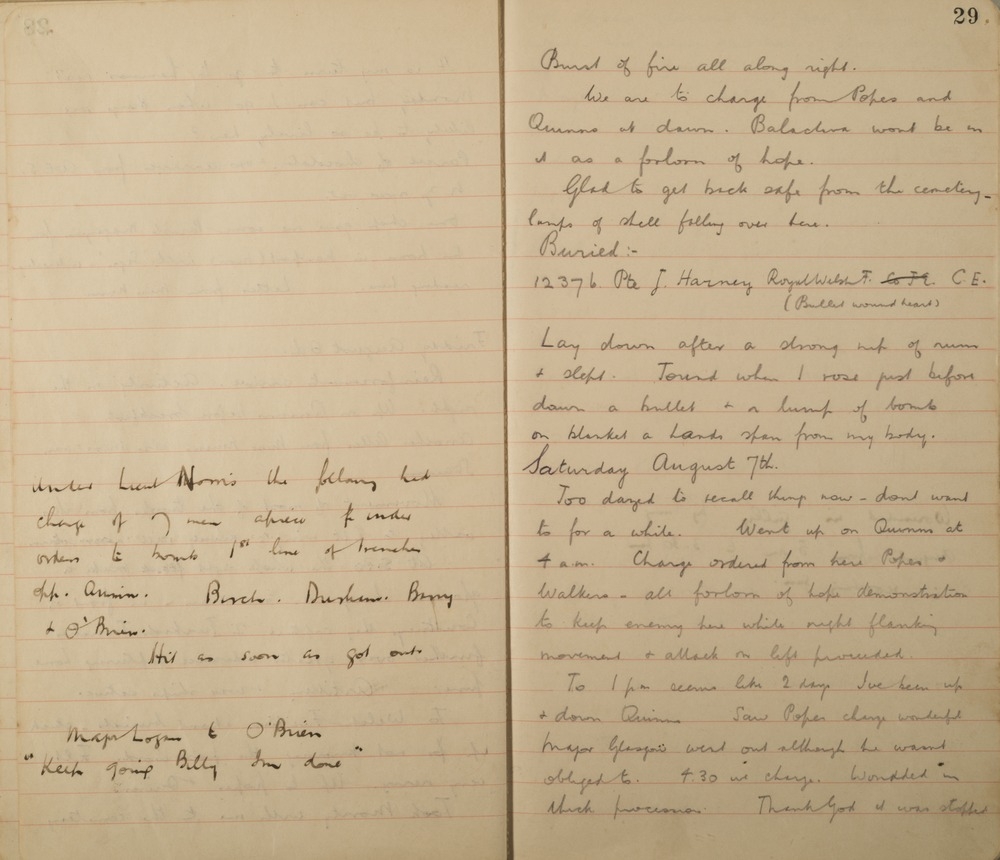 under Lieut Norris the following had
charge of 7 men apiece & under
orders to bomb 1st line of trenches
opp. Quinn. Birch. Durham. Barry
& O'Brien.
Hit as soon as got out
Major Logan to O'Brien
"Keep going Billy I'm done"
29.
Burst of fire all along right.
We are to charge from Popes and
Quinns at dawn. Balaclava wont be in
it as a forlorn of hope.
Glad to get back safe from the cemetery -
lumps of shell falling over here.
Buried :-
12376. Pte J. Harney Royal Welsh F. Co F.E. C.E.
(Bullet wound heart)
Lay down after a strong nip of rum
& slept. Found when I rose just before
dawn a bullet & a lump of bomb
on blanket a hands span from my body.
Saturday August 7th.
Too dazed to recall things now - dont want
to for a while. Went up on Quinns at
4 am. Charge ordered from here Popes &
Walkers - all forlorn of hope demonstration
to keep enemy here while night flanking
movement & attack on left proceeded.
To 1 pm seems like 2 days I've been up
& down Quinns Saw Popes charge wonderful
Major Glasgow went out although he wasnt
obliged to. 4.30 we charge. Wounded in
thick procession. Thank God it was stopped